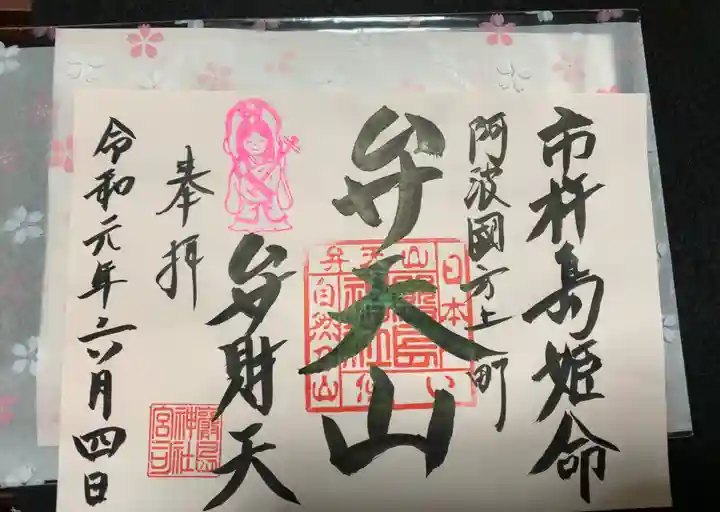 市杵島姫命
阿波國方上町
弁天山
弁財天
奉拝
令和元年六月四日
日本一
自然の山
嚴島
神社
宮司